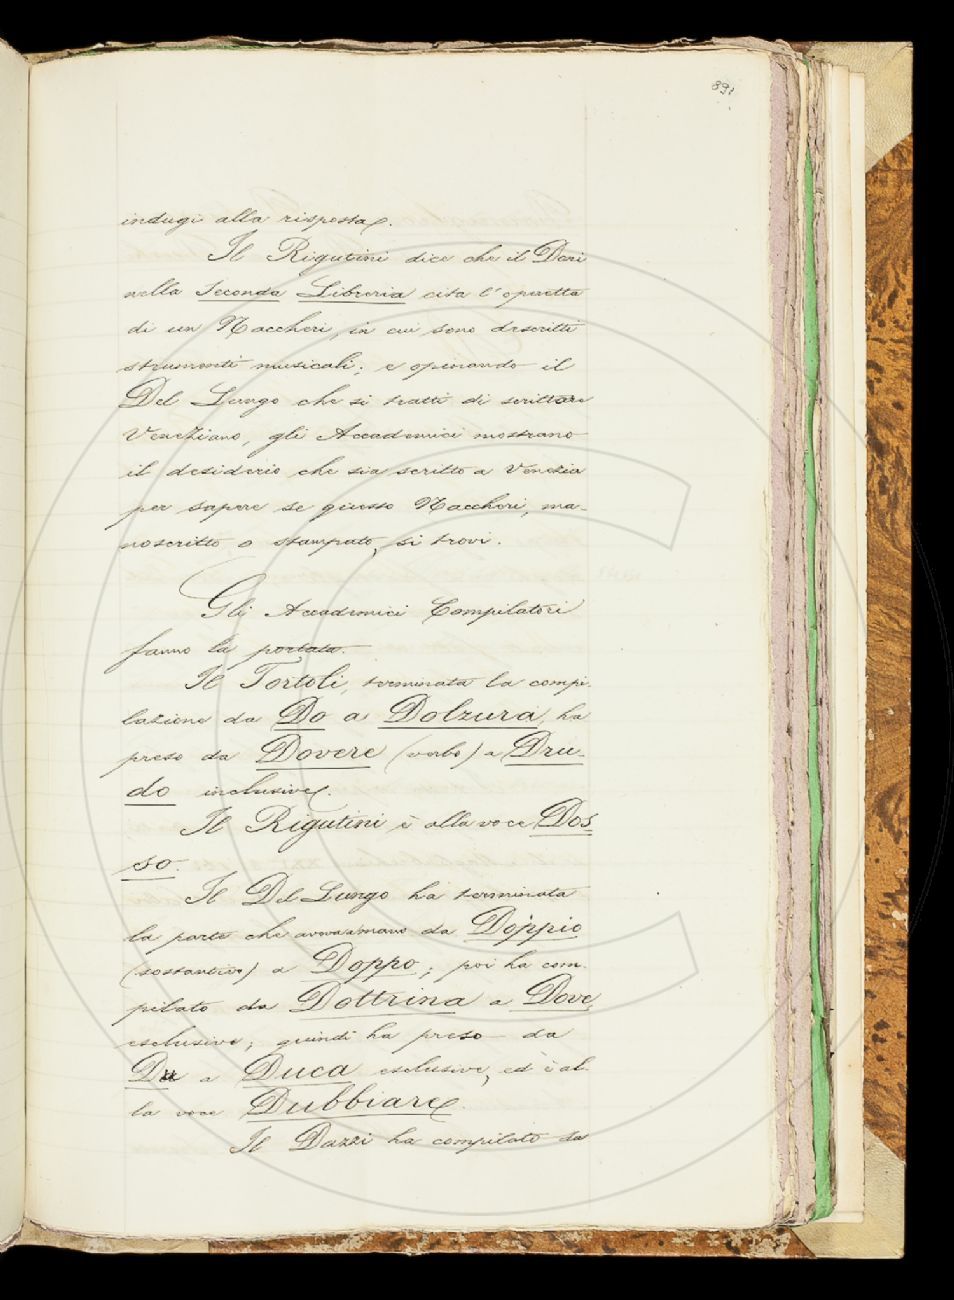 891
indugi alla risposta.
Il Rigutini dice che il Doni
nella Seconda Libreria cita l'operetta
di un Naccheri, in cui sono descritti
strumenti musicali; e opinando il
Del Lungo che si tratti di scrittore
Veneziano, gli Accademici mostrano
il desiderio che sia scritto a Venezia
per sapere se questo Naccheri, ma-
noscritto o stampato, si trovi.
Gli Accademici Compilatori
fanno la portata.
Il Tortoli, terminata la compi-
lazione da Do a Dolzura, ha
preso da Dovere (verbo) a Dru-
do inclusive.
Il Rigutini è alla voce Dos-
so.
Il Del Lungo ha terminata
la parte che avevamavo da Doppio
(sostantivo) a Doppo; poi ha com-
pilato da Dottrina a Dove
esclusive; quindi ha preso da
Du a Duca esclusive, ed è al-
la voce Dubbiare.
Il Dazzi ha compilato da